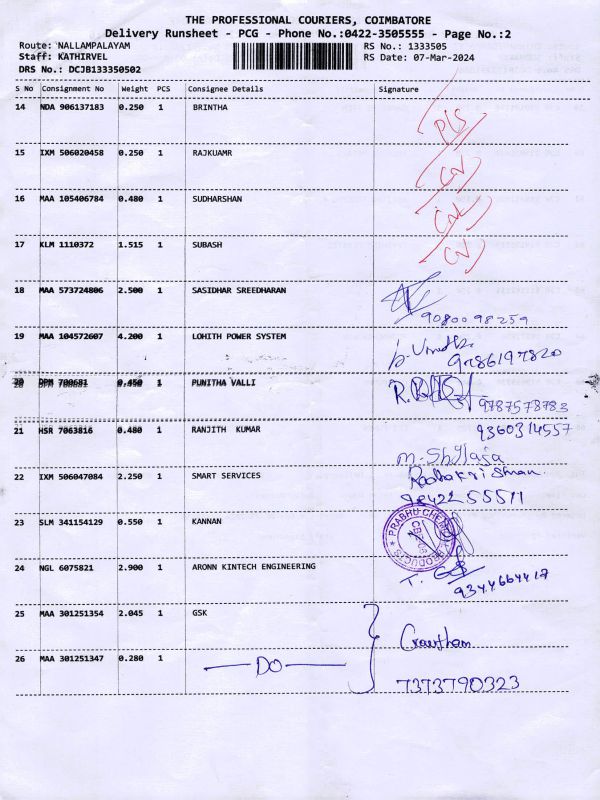 THE PROFESSIONAL COURIERS, COIMBATORE
Delivery Runsheet - PCG - Phone No.:0422-3505555 - Page No.:2
Route: NALLAMPALAYAM RS No.: 1333505
Staff: KATHIRVEL RS Date: 07-Mar-2024
DRS No.: DCJB133350502
S No Consignment No Weight PCS Consignee Details Signature
14 NDA 906137183 0.250 1 BRINTHA
15 IXM 506020458 0.250 1 RAJKUAMR
16 MAA 105406784 0.480 1 SUDHARSHAN
17 KLM 1110372 1.515 1 SUBASH
18 MAA 573724806 2.500 1 SASIDHAR SREEDHARAN
9080098259
19 MAA 104572607 4.200 1 LOHITH POWER SYSTEM
9786197820
20 DPM 700681 0.450 1 PUNITHA VALLI
9787578783
21 HSR 7063816 0.480 1 RANJITH KUMAR 9360314557
M. Shyllaja
22 IXM 506047084 2.250 1 SMART SERVICES Radhakrishnan
9842255511
23 SLM 341154129 0.550 1 KANNAN
PRABHU PRODUCTS CBE-06
24 NGL 6075821 2.900 1 ARONN KINTECH ENGINEERING
9344664417
25 MAA 301251354 2.045 1 GSK
Gowtham
26 MAA 301251347 0.280 1 DO
7373790323